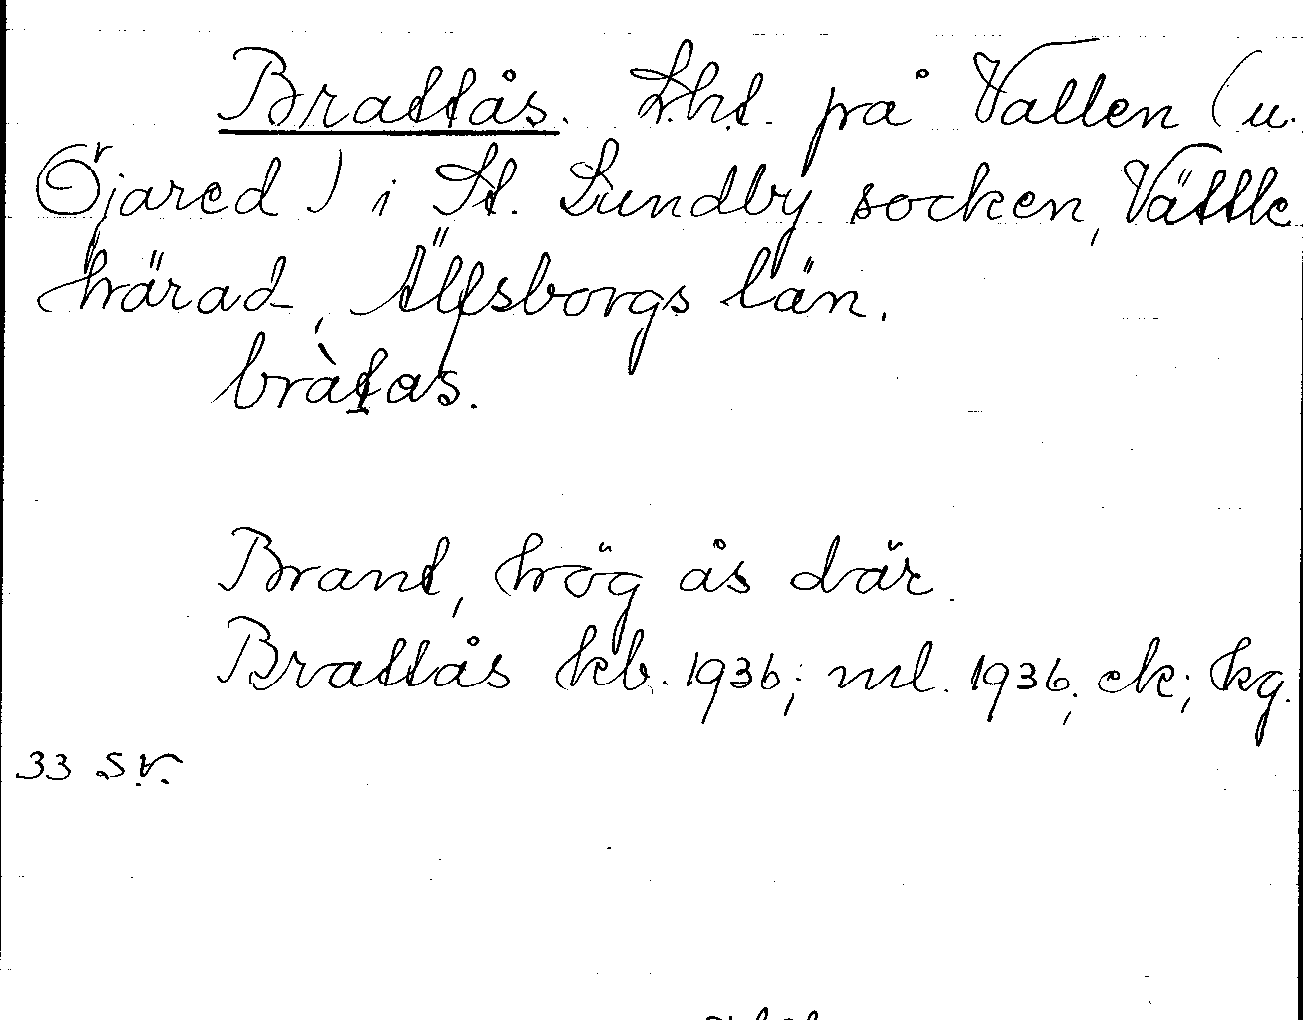 Brattås. Lht. på Vallen (u.
Öjared) i St. Lundby socken, Vättle
härad, Älfsborgs län.
bràtas.
Brant, hög ås där.
Brattås kb. 1936; ml. 1936; ek; kg.
33 S.V.